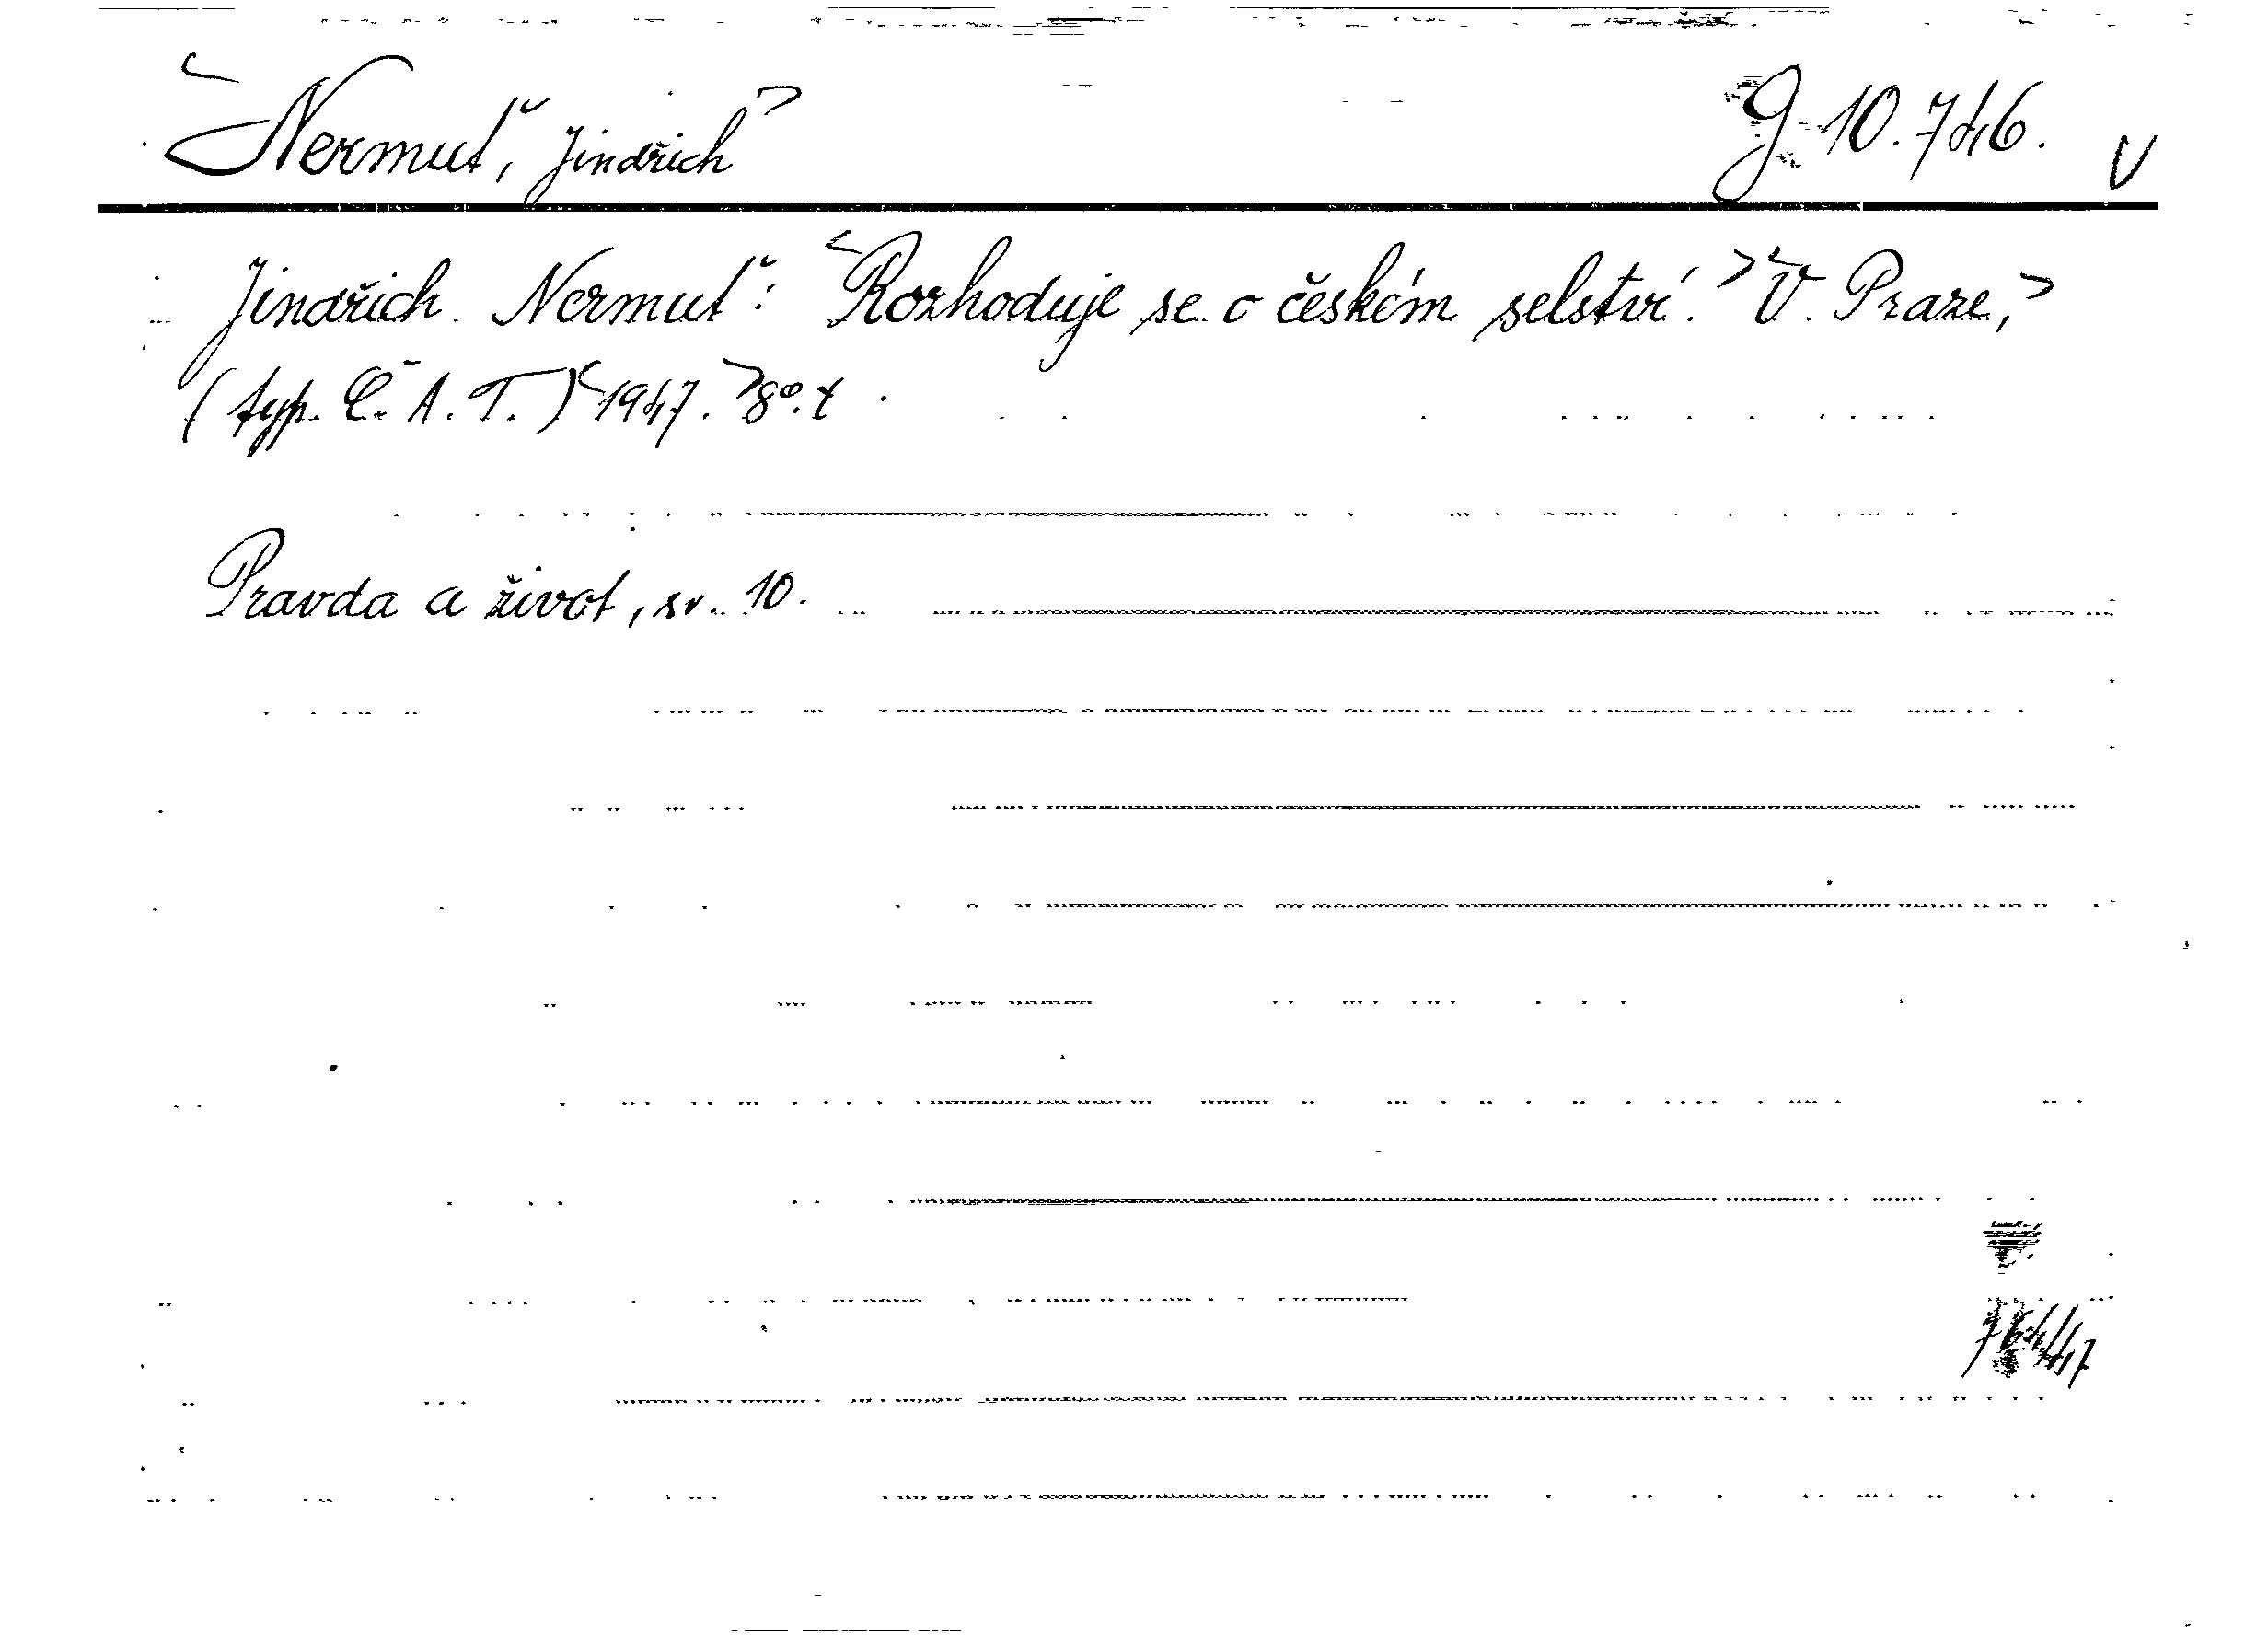 <Nermuť, Jindřich> G 10.746. V
Jindřich Nermuť: <Rozhoduje se o českém selství.> <V Praze,>
(typ. Č. A. T.) <1947.> 8°.
Pravda a život, sv. 10.